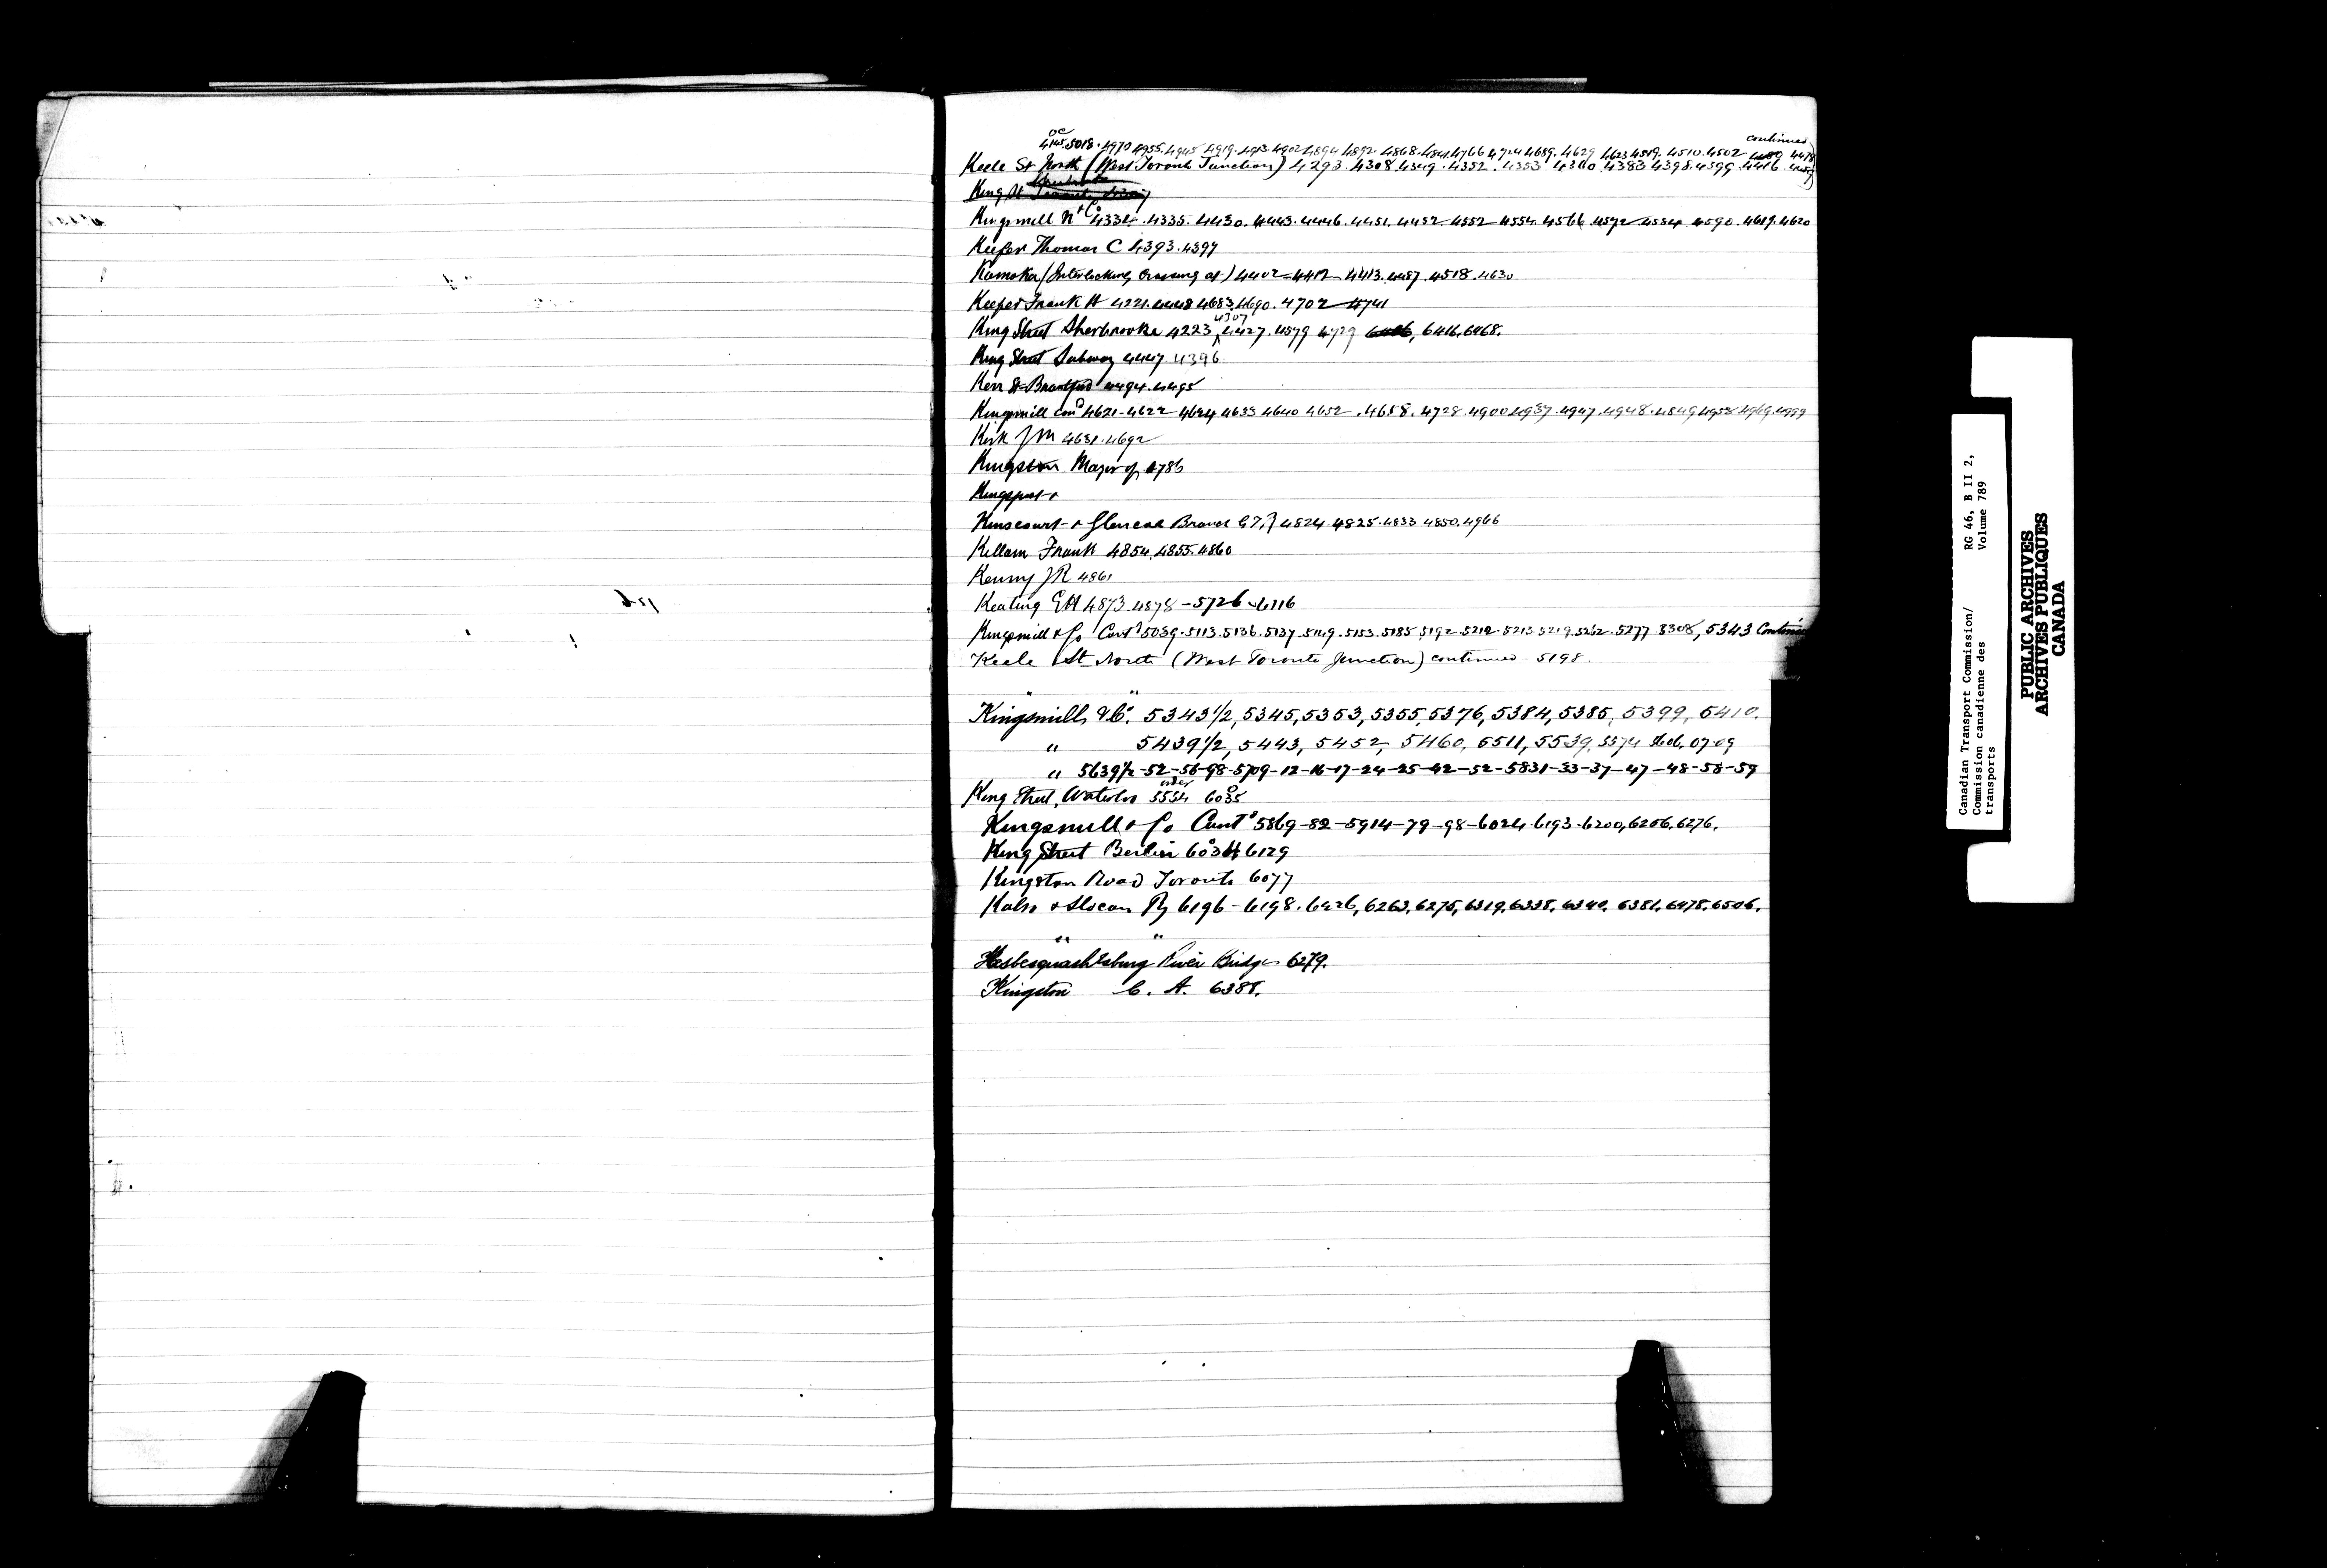 continued
oc
4145 5018. 4970 4955. 4945 4919. 4913. 4902 4894 4892. 4868. 4841. 4766 4724 4689. 4629 4623 4519. 4510. 4502 4489 4478
Keele St North (West Toronto Junction) 4293. 4308. 4349. 4352. 4353 4360 4383 4398. 4399. 4416
King St
Kingsmill N & Co 4334. 4335. 4430. 4443. 4446. 4451. 4452 4552 4554. 4566 4572 4584 4590. 4619. 4620
Keefer Thomas C 4393. 4397
Komoka (Interlocking Crossing at) 4402 4412 4413. 4487. 4518. 4630
Keefer Frank H 4221. 4448 4683 4690. 4702 4741
4307
King Street Sherbrooke 4223, 4427. 4579 4729 6416, 6468.
King Street Subway 4447 4396
Kerr St Brantford 4494. 4495
Kingsmill cond 4621-4622 4624 4633 4640 4652. 4658. 4728. 4900 4937. 4947. 4948. 4949 4958 4969. 4999
Kirk J M 4631. 4692
Kingston Mayor of 4786
Kingsport
Kinscourt & Glencoe Branch G.T.} 4824 4825. 4833 4850. 4966
Killam Frank 4854. 4855. 4860
Kenny J R 4861
Keating E H 4873. 4878 - 5726 - 6116
Kingsmill & Co Contd 5039. 5113. 5136. 5137. 5149. 5153. 5185 5192 5212. 5213 5219. 5262. 5277 5308, 5343 Continued
Keele St North (West Toronto Junction) continued 5198.
" "
Kingsmill, & Co. 5343 1/2, 5345, 5353, 5355, 5376, 5384, 5385, 5399, 5410.
" 5439 1/2, 5443, 5452, 5460, 5511, 5539, 5574 5606, 07-09
" 5639 1/2 -52-56-98-5709-12-16-17-24-25-42-52-5831-33-37-47-48-58-59
order
King Street, Waterloo 5554 6035
Kingsmill & Co Contd 5869-82-5914-79-98-6024. 6193. 6200, 6256, 6276.
King Street Berlin 6034 6129
Kingston Road Toronto 6077
Kalso & Slocan Ry 6196-6198. 6226, 6263, 6275, 6319, 6335, 6340, 6381, 6475, 6506.
" "
River Bridge 6279.
Kingston C. A. 6388.
Canadian Transport Commission/
Commission canadienne des
transports
RG 46, B II 2,
Volume 789
PUBLIC ARCHIVES
ARCHIVES PUBLIQUES
CANADA